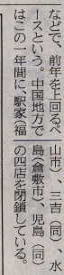 などで、前年を上回るペ
ースという。中国地方で
はこの一年間に、駅家(福
山市)、三吉(同)、水
島(倉敷市)、児島(同)
の四店を閉鎖している。